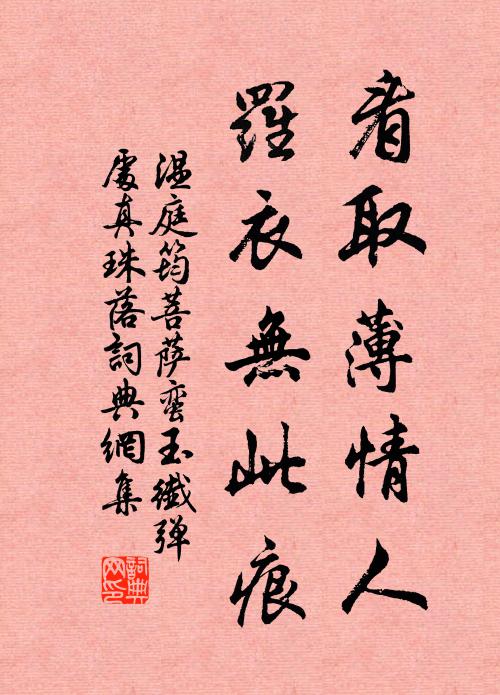 看取薄情人
羅衣無此痕
温庭筠菩薩蛮玉纖弹
處真珠落詞典網集
詞典网印